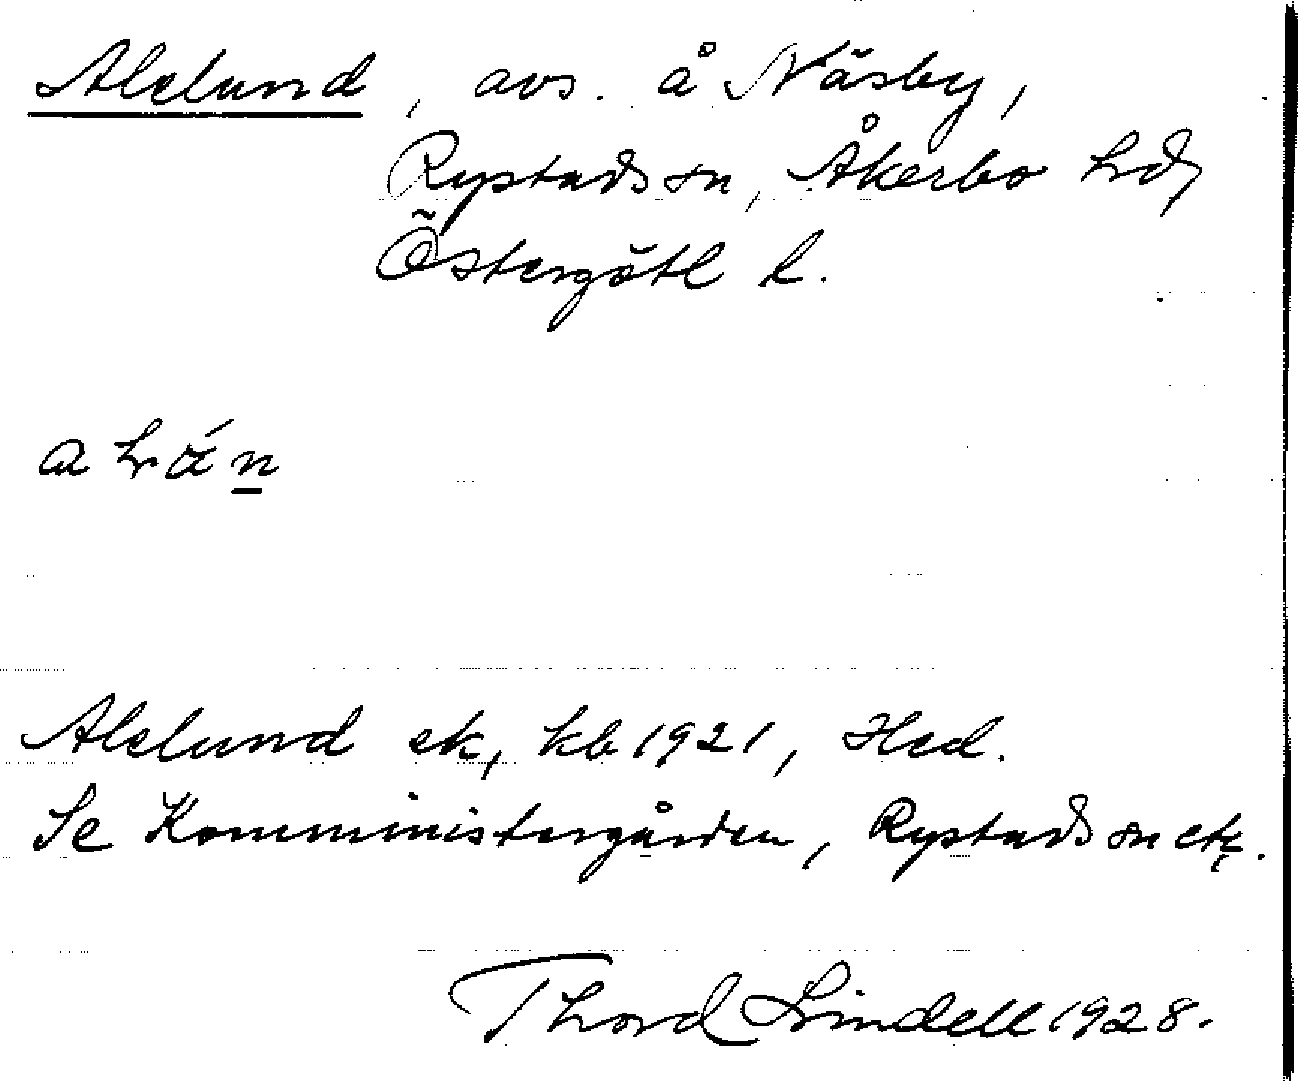 Alelund, avs. å Näsby,
Rystads sn, Åkerbo hd,
Östergötl l.
Alelund ek, kb 1921, Hed.
Se Kommistergården, Rystads sn etc.
Thord Lindell 1928.